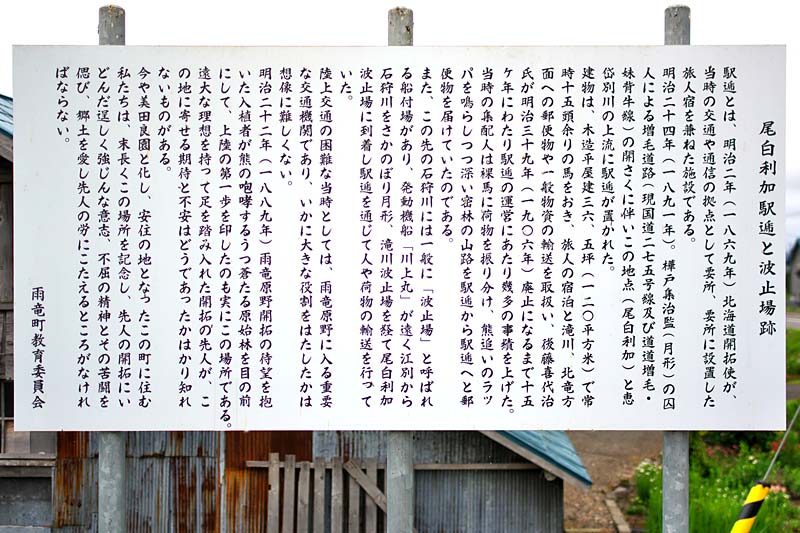 尾白利加駅逓と波止場跡
駅逓とは、明治二年（一八六九年）北海道開拓使が、
当時の交通や通信の拠点として要所、要所に設置した
旅人宿を兼ねた施設である。
明治二十四年（一八九一年）。樺戸集治監（月形）の囚
人による増毛道路（現国道二七五号線及び道道増毛・
妹背牛線）の開さくに伴いこの地点（尾白利加）と恵
岱別川の上流に駅逓が置かれた。
建物は、木造平屋建三六、五坪（一二〇平方米）で常
時十五頭余りの馬をおき、旅人の宿泊と滝川、北竜方
面への郵便物や一般物資の輸送を取扱い、後藤喜代治
氏が明治三十九年（一九〇六年）廃止になるまで十五
ケ年にわたり駅逓の運営にあたり幾多の事績を上げた。
当時の集配人は裸馬に荷物を振り分け、熊追いのラッ
パを鳴らしつつ深い密林の山路を駅逓から駅逓へと郵
便物を届けていたのである。
また、この先の石狩川には一般に「波止場」と呼ばれ
る船付場があり、発動機船「川上丸」が遠く江別から
石狩川をさかのぼり月形、滝川波止場を経て尾白利加
波止場に到着し駅逓を通じて人や荷物の輸送を行って
いた。
陸上交通の困難な当時としては、雨竜原野に入る重要
な交通機関であり、いかに大きな役割をはたしたかは
想像に難しくない。
明治二十二年（一八八九年）雨竜原野開拓の待望を抱
いた入植者が熊の咆哮するうつ蒼たる原始林を目の前
にして、上陸の第一歩を印したのも実にこの場所である。
遠大な理想を持って足を踏み入れた開拓の先人が、こ
の地に寄せる期待と不安はどうであったかはかり知れ
ないものがある。
今や美田良園と化し、安住の地となったこの町に住む
私たちは、末長くこの場所を記念し、先人の開拓にい
どんだ逞しく強じんな意志、不屈の精神とその苦闘を
偲び、郷土を愛し先人の労にこたえるところがなけれ
ばならない。
雨竜町教育委員会